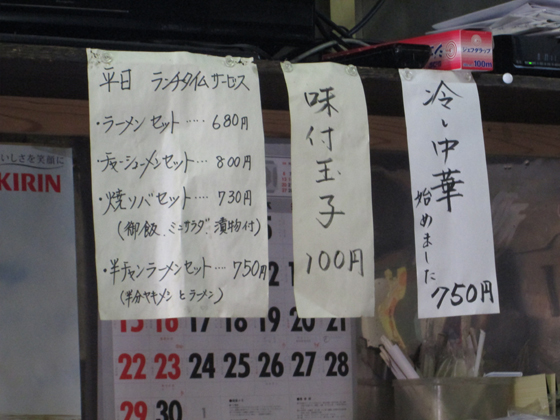 平日 ランチタイムサービス
・ラーメンセット‥‥680円
・チャーシューメンセット‥‥800円
・焼ソバセット‥‥730円
(御飯、ミニサラダ、漬物付)
・半チャンラーメンセット‥‥750円
(半分ヤキメシとラーメン)
味付玉子
100円
冷し中華
始めました
750円
いしさを笑顔に
KIRIN
ジョブタラップ
100m
15 16 17 18 19 20 21
22 23 24 25 26 27 28
29 30